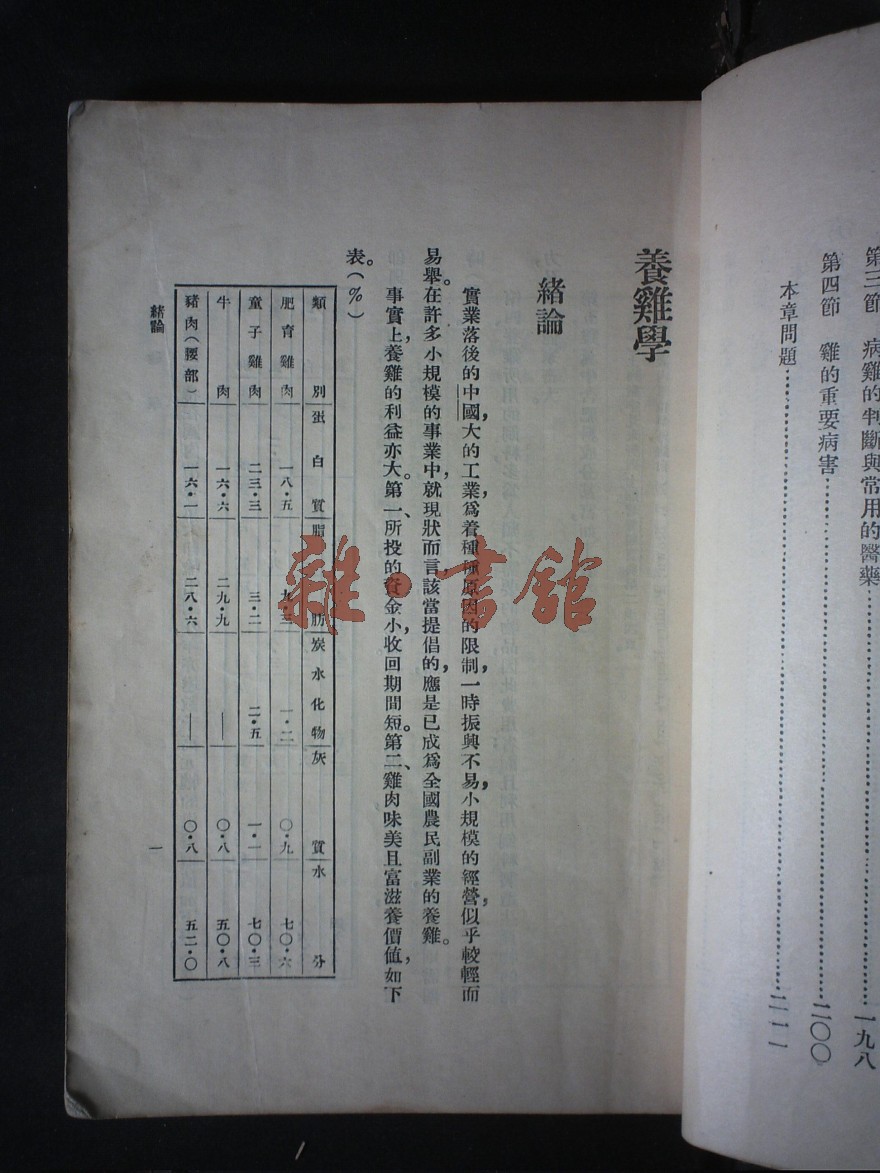 第三節　病雞的判斷與常用的醫藥……一九八
第四節　雞的重要病害……二〇〇
本章問題……二一一
養雞學
緒論
實業落後的中國，大的工業，爲着種種原因的限制，一時振興不易，小規模的經營，似乎較輕而
易舉。在許多小規模的事業中，就現狀而言，該當提倡的，應是已成爲全國農民副業的養雞。
事實上養雞的利益亦大。第一、所投的資金小，收回期間短。第二、雞肉味美且富滋養價值，如下
表。（％）
類別　蛋白質　脂肪　炭水化物　灰質　水分
肥育雞肉　一八・五　九・三　一・二　〇・九　七〇・六
童子雞肉　二三・三　三・二　二・五　一・一　七〇・三
牛肉　一六・六　二九・九　——　〇・八　五〇・八
豬肉（腰部）　一六・一　二八・六　——　〇・八　五二・〇
緒論
一
雜・書館